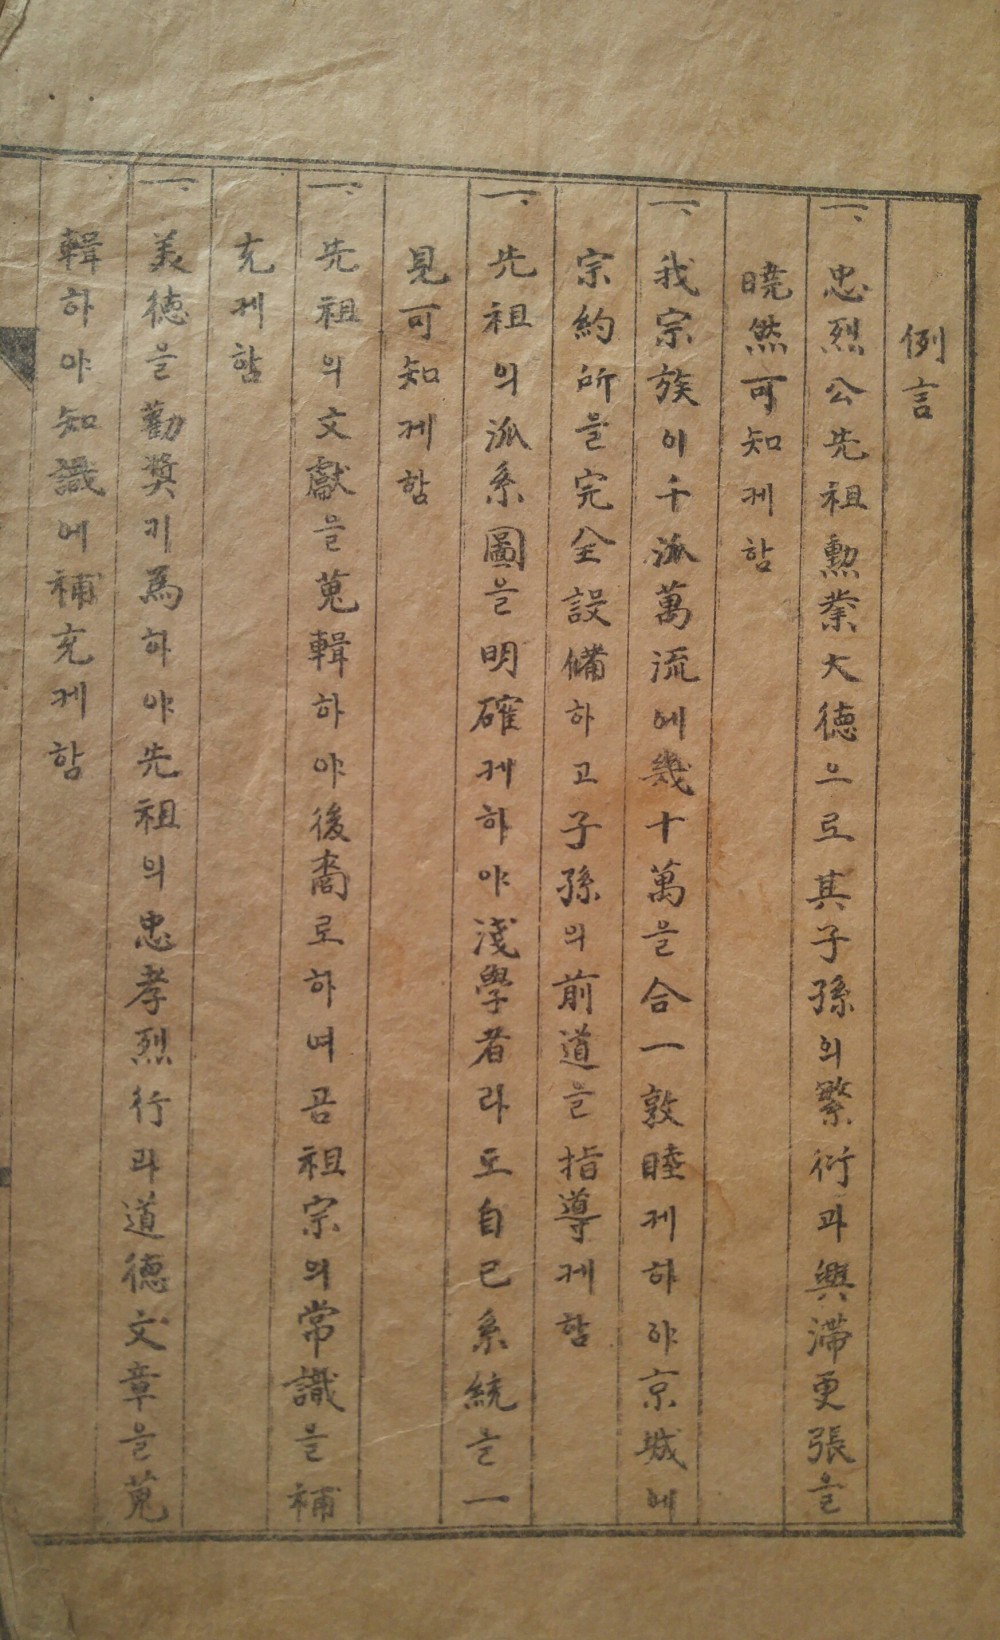 例言
一、忠烈公先祖勳業大德으로其子孫의繁衍과興滯更張을
曉然可知케함
一、我宗族이千派萬流에幾十萬을合一敦睦케하야京城에
宗約所을完全設備하고子孫의前道을指導케함
一、先祖의派系圖을明確케하야淺學者라도自己系統을一
見可知케함
一、先祖의文獻을蒐輯하야後裔로하여곰祖宗의常識을補
充케함
一、美德을勸奬키爲하야先祖의忠孝烈行과道德文章을蒐
輯하야知識에補充케함